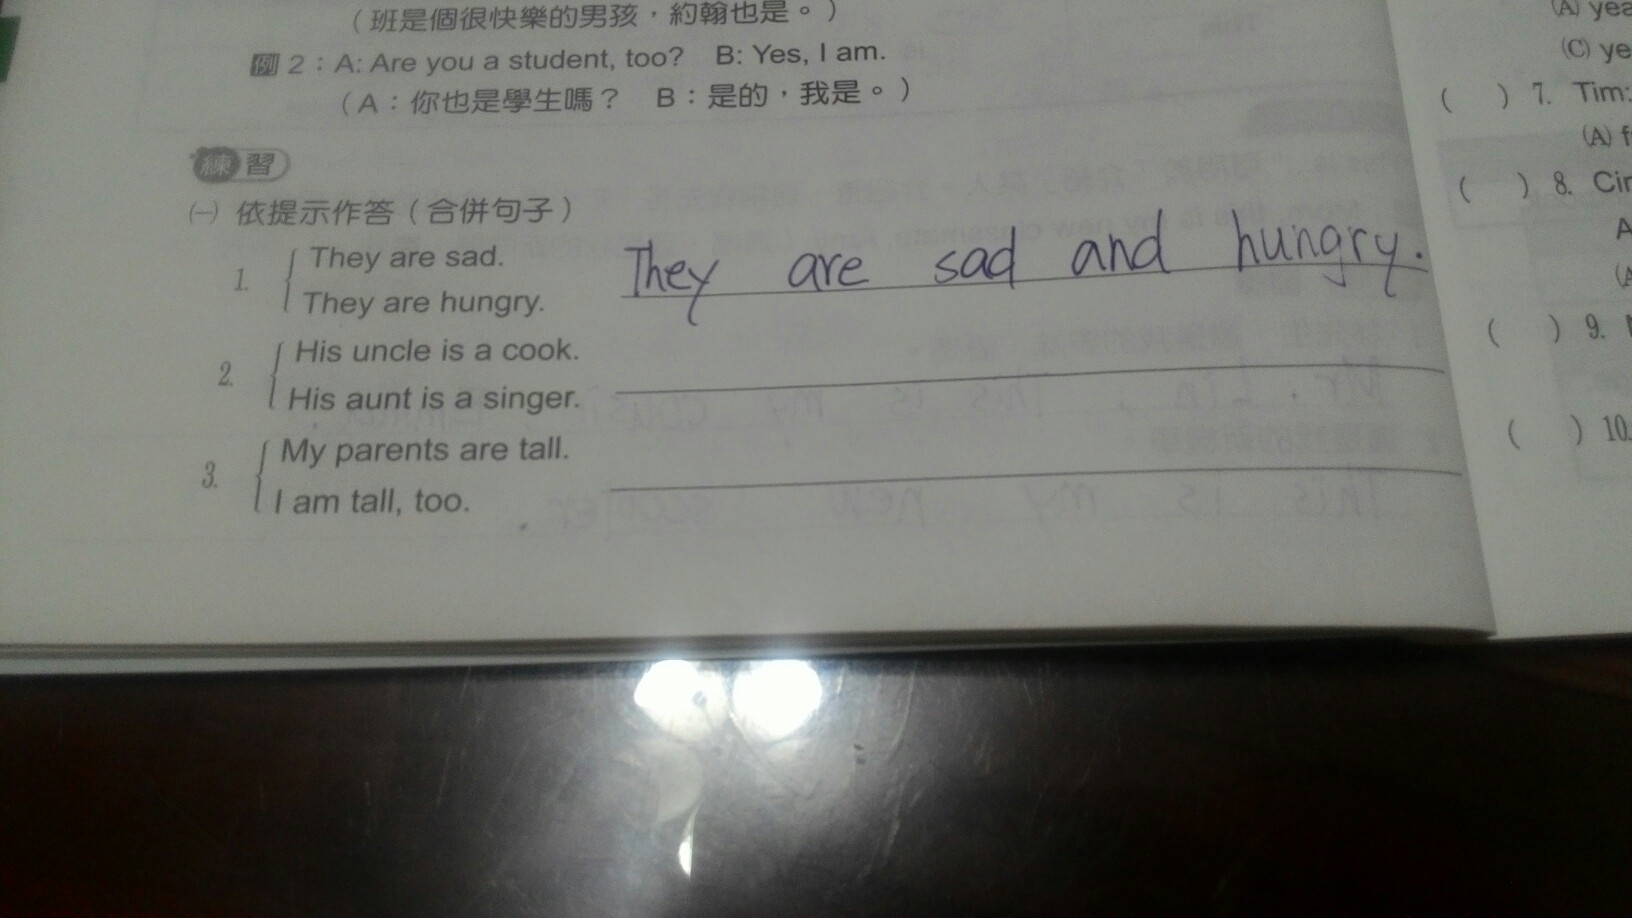 (班是個很快樂的男孩，約翰也是。)
例 2：A: Are you a student, too? B: Yes, I am.
(A：你也是學生嗎？ B：是的，我是。)
練習
㈠ 依提示作答（合併句子）
1. They are sad.
They are hungry.
They are sad and hungry.
2. His uncle is a cook.
His aunt is a singer.
3. My parents are tall.
I am tall, too.
(A) yea
(C) ye
( ) 7. Tim:
(A) f
( ) 8. Cin
A
(A
( ) 9.
( ) 10.